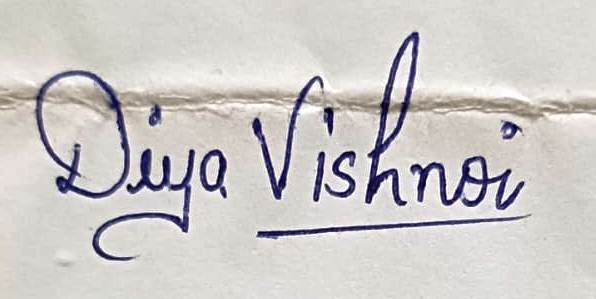 Diya Vishnoi